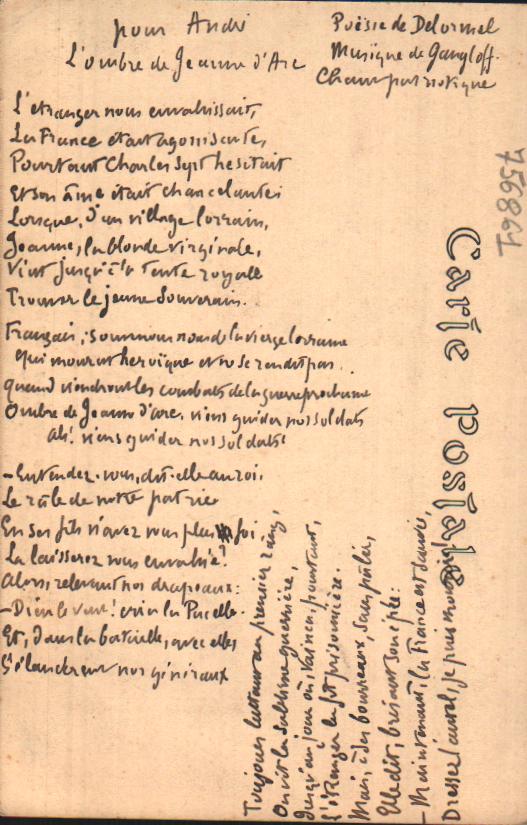 pour André
L'ombre de Jeanne d'Arc
Poësie de Delormel
Musique de Gangloff.
Chant patriotique
L'étranger nous envahissait,
La France était agonisante,
Pourtant Charles Sept hésitait
Et son âme était chancelante;
Lorsque, d'un village lorrain,
Jeanne, la blonde virginale,
Vint jusqu'à la tente royale
Trouver le jeune Souverain.
Français, souvenons nous de la vierge lorraine
Qui mourut héroïque et ne se rendit pas..
Quand viendront les combats de la guerre prochaine
Ombre de Jeanne d'Arc, viens guider nos soldats
Ah! viens guider nos soldats!
- Entendez-vous, dit-elle au roi,
Le râle de notre patrie
En ses fils n'avez vous plus foi,
La laisserez vous envahie?
Alors, relevant nos drapeaux:
- Dieu le veut! cria la Pucelle.
Et, dans la bataille, avec elle
S'élancèrent nos généraux
Toujours luttant au premier rang,
On vit la sublime guerrière,
Jusqu'au jour où, vaincu pourtant,
L'étranger la fit prisonnière.
Mais, à ses bourreaux, sans pâlir,
Elle dit, brisant son épée:
- Maintenant, la France est sauvée,
Dressez l'autel, je puis mourir!
Carte Postale
756867